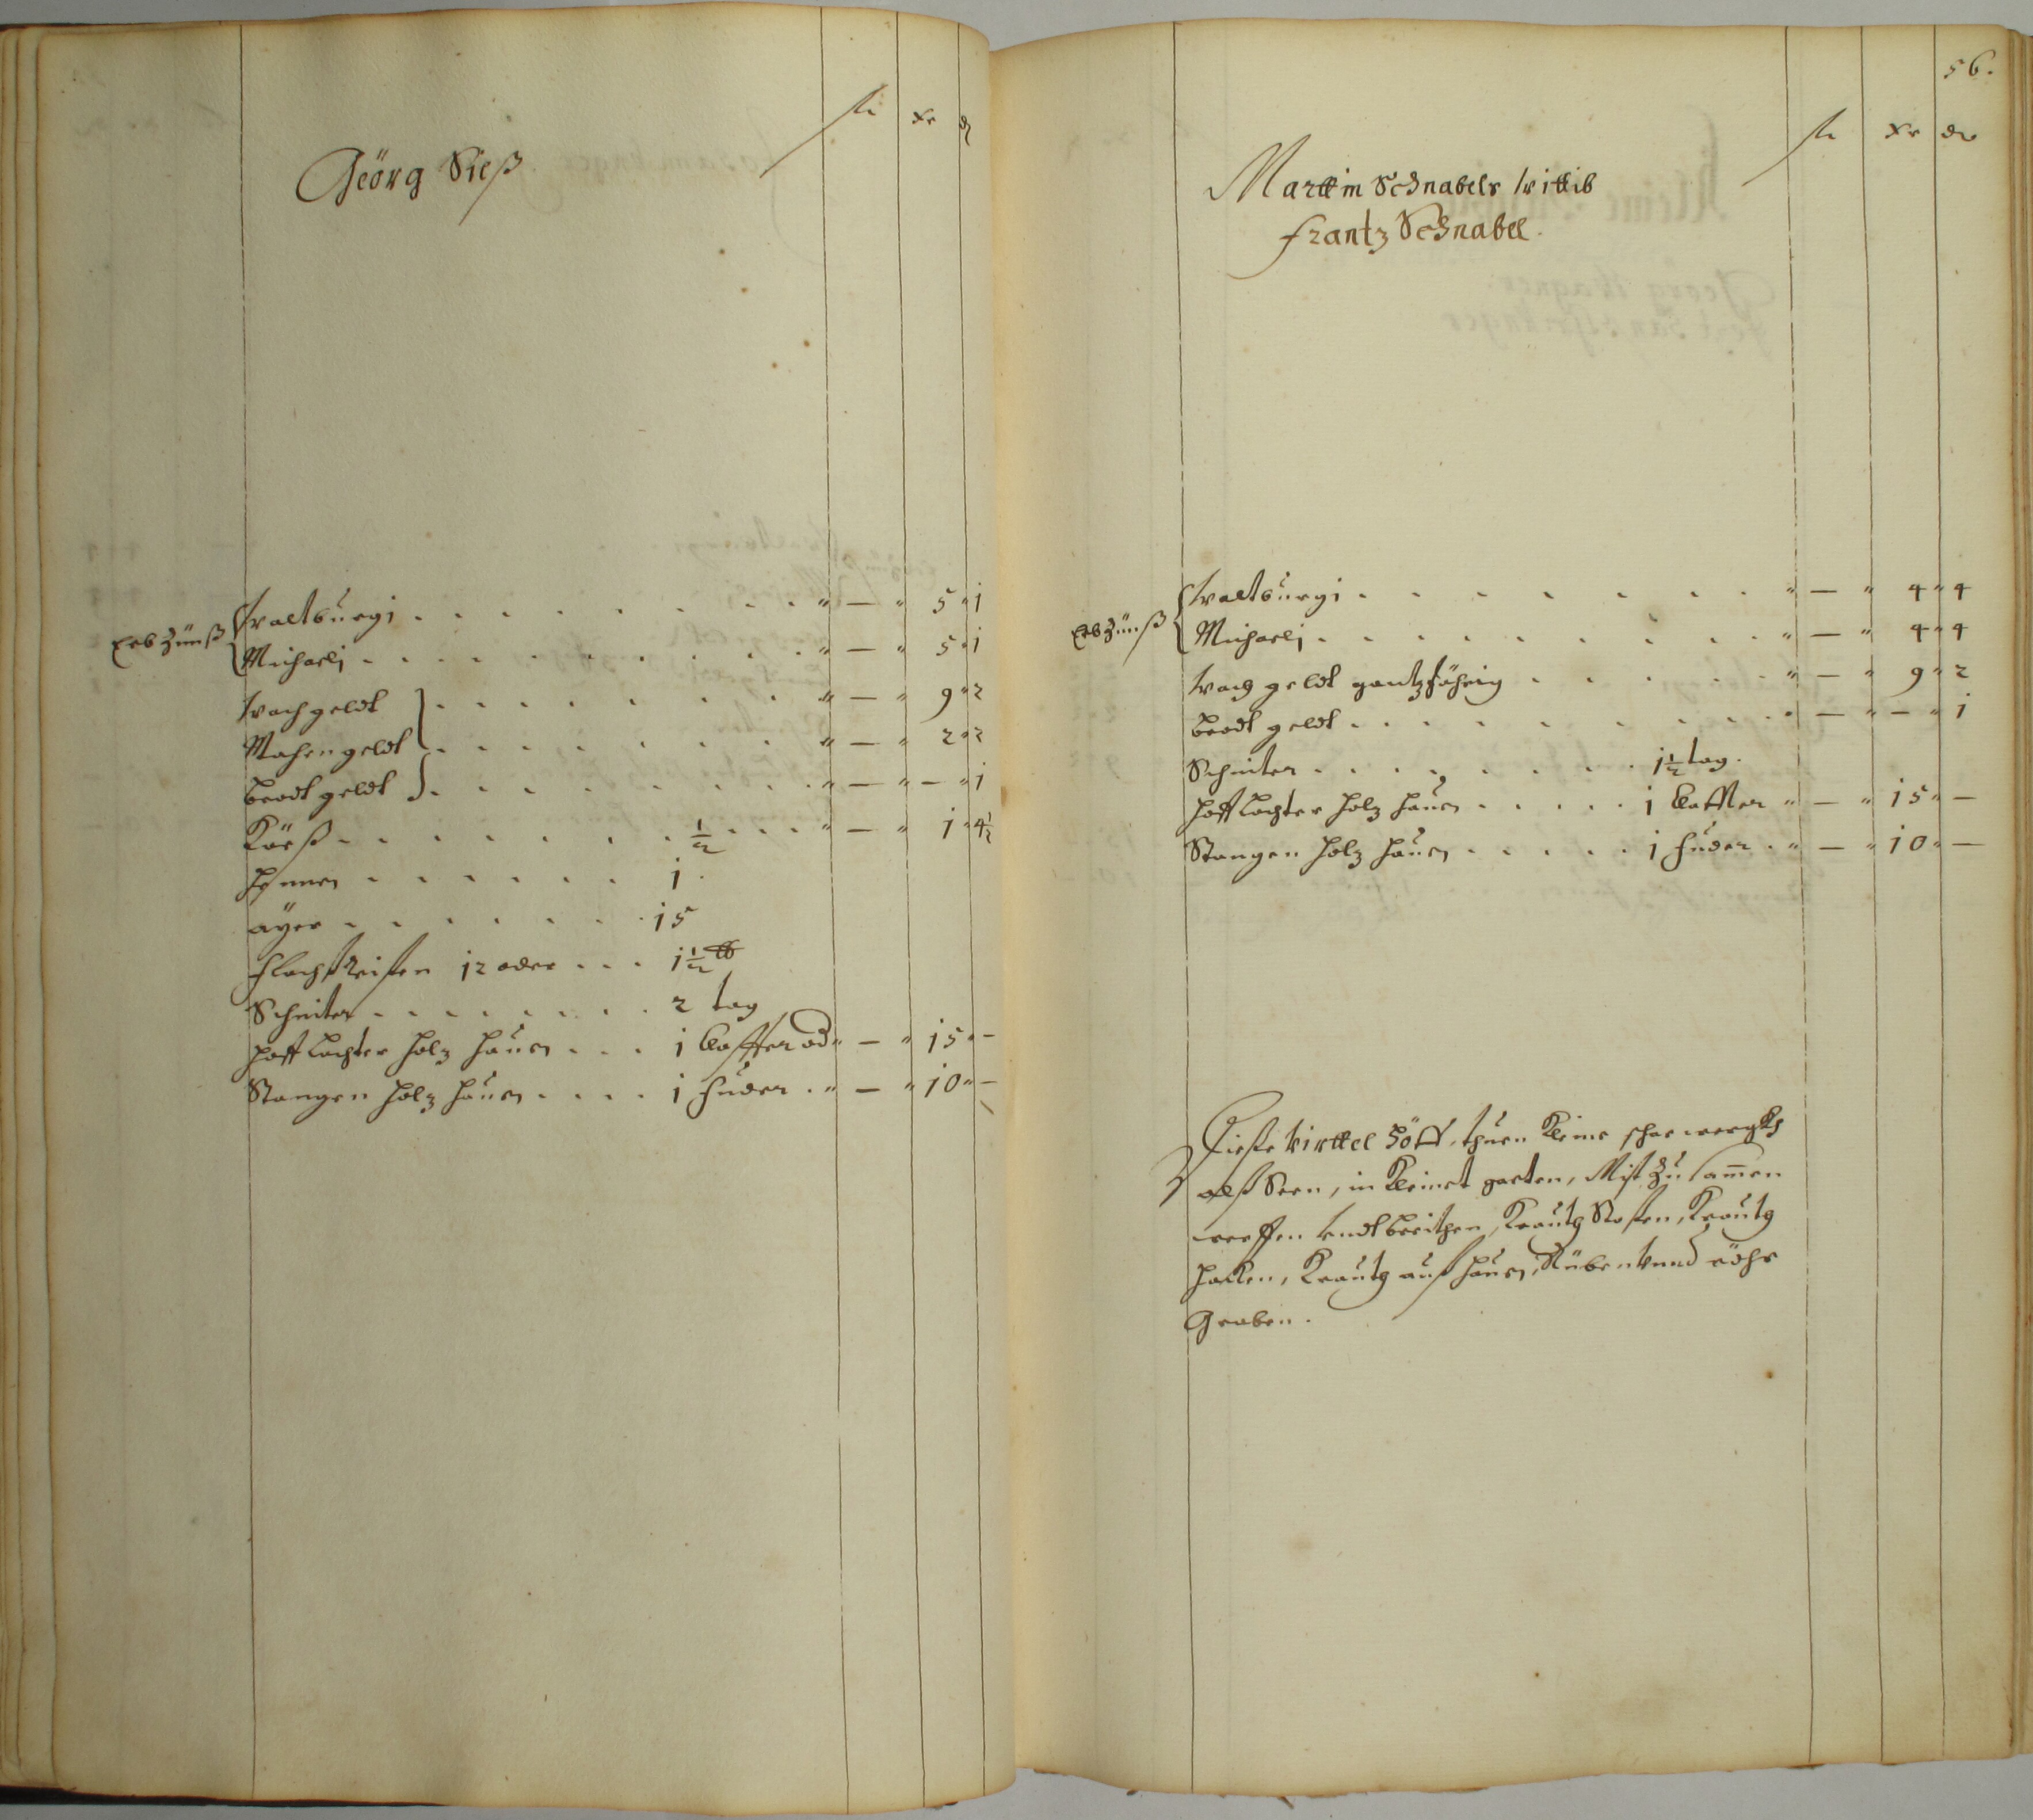 fl xr ₰
Geörg Sieß
Erb Zünß
Waltburgi . . . . . . . . „ — „ 5 „ 1
Michaeli . . . . . . . . „ — „ 5 „ 1
Wach geldt . . . . . . . „ — „ 9 „ 2
Mahengeldt . . . . . . . „ — „ 2 „ 2
brodt geldt . . . . . . . „ — „ — „ 1
Käeß . . . . . . . ½ . . . „ — „ 1 „ 4½
Hennen . . . . . . 1 .
äyer . . . . . . . 15
flachß Reisten 12 oder . . . 1½ ℔
Schniter . . . . . . . 2 tag
Hoff Lachter Holz Hauen . . . 1 klaffter od „ — „ 15 „ —
Stangen Holz Hauen . . . . 1 fuder . „ — „ 10 „ —
56.
fl xr dn
Marttin Schnabels Wittib
Frantz Schnabel.
Erb Zünß
Waltburgi . . . . . . . . „ — „ 4 „ 4
Michaeli . . . . . . . . „ — „ 4 „ 4
Wach geldt gantzJährig . . . . . „ — „ 9 „ 2
brodt geldt . . . . . . . . „ — „ — „ 1
Schniter . . . . . . . . 1½ tag.
Hoff Lachter Holz Hauen . . . . . 1 klaffter „ — „ 15 „ —
Stangen Holz Hauen . . . . . 1 fuder . „ — „ 10 „ —
Diese Virttel Höff, thuen kleine scharwergkh
alß Seen, in Kleinet garten, Mist Zusammen
werffen vndt breithen, Krauth Stossen, Krauth
Hacken, Krauth auß Hauen, Rüben vnnd
Graben.